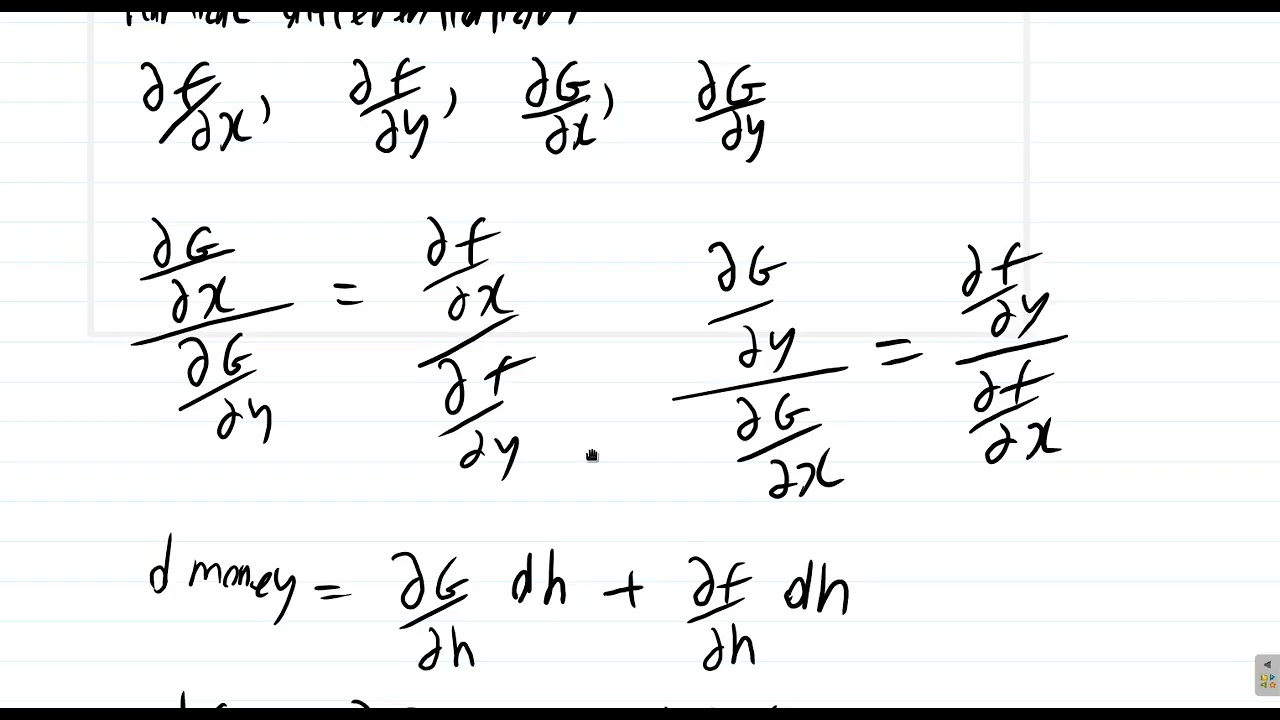 ∂f/∂x, ∂f/∂y, ∂G/∂x, ∂G/∂y
(∂G/∂x)/(∂G/∂y) = (∂f/∂x)/(∂f/∂y) (∂G/∂y)/(∂G/∂x) = (∂f/∂y)/(∂f/∂x)
d money = ∂G/∂h dh + ∂f/∂h dh